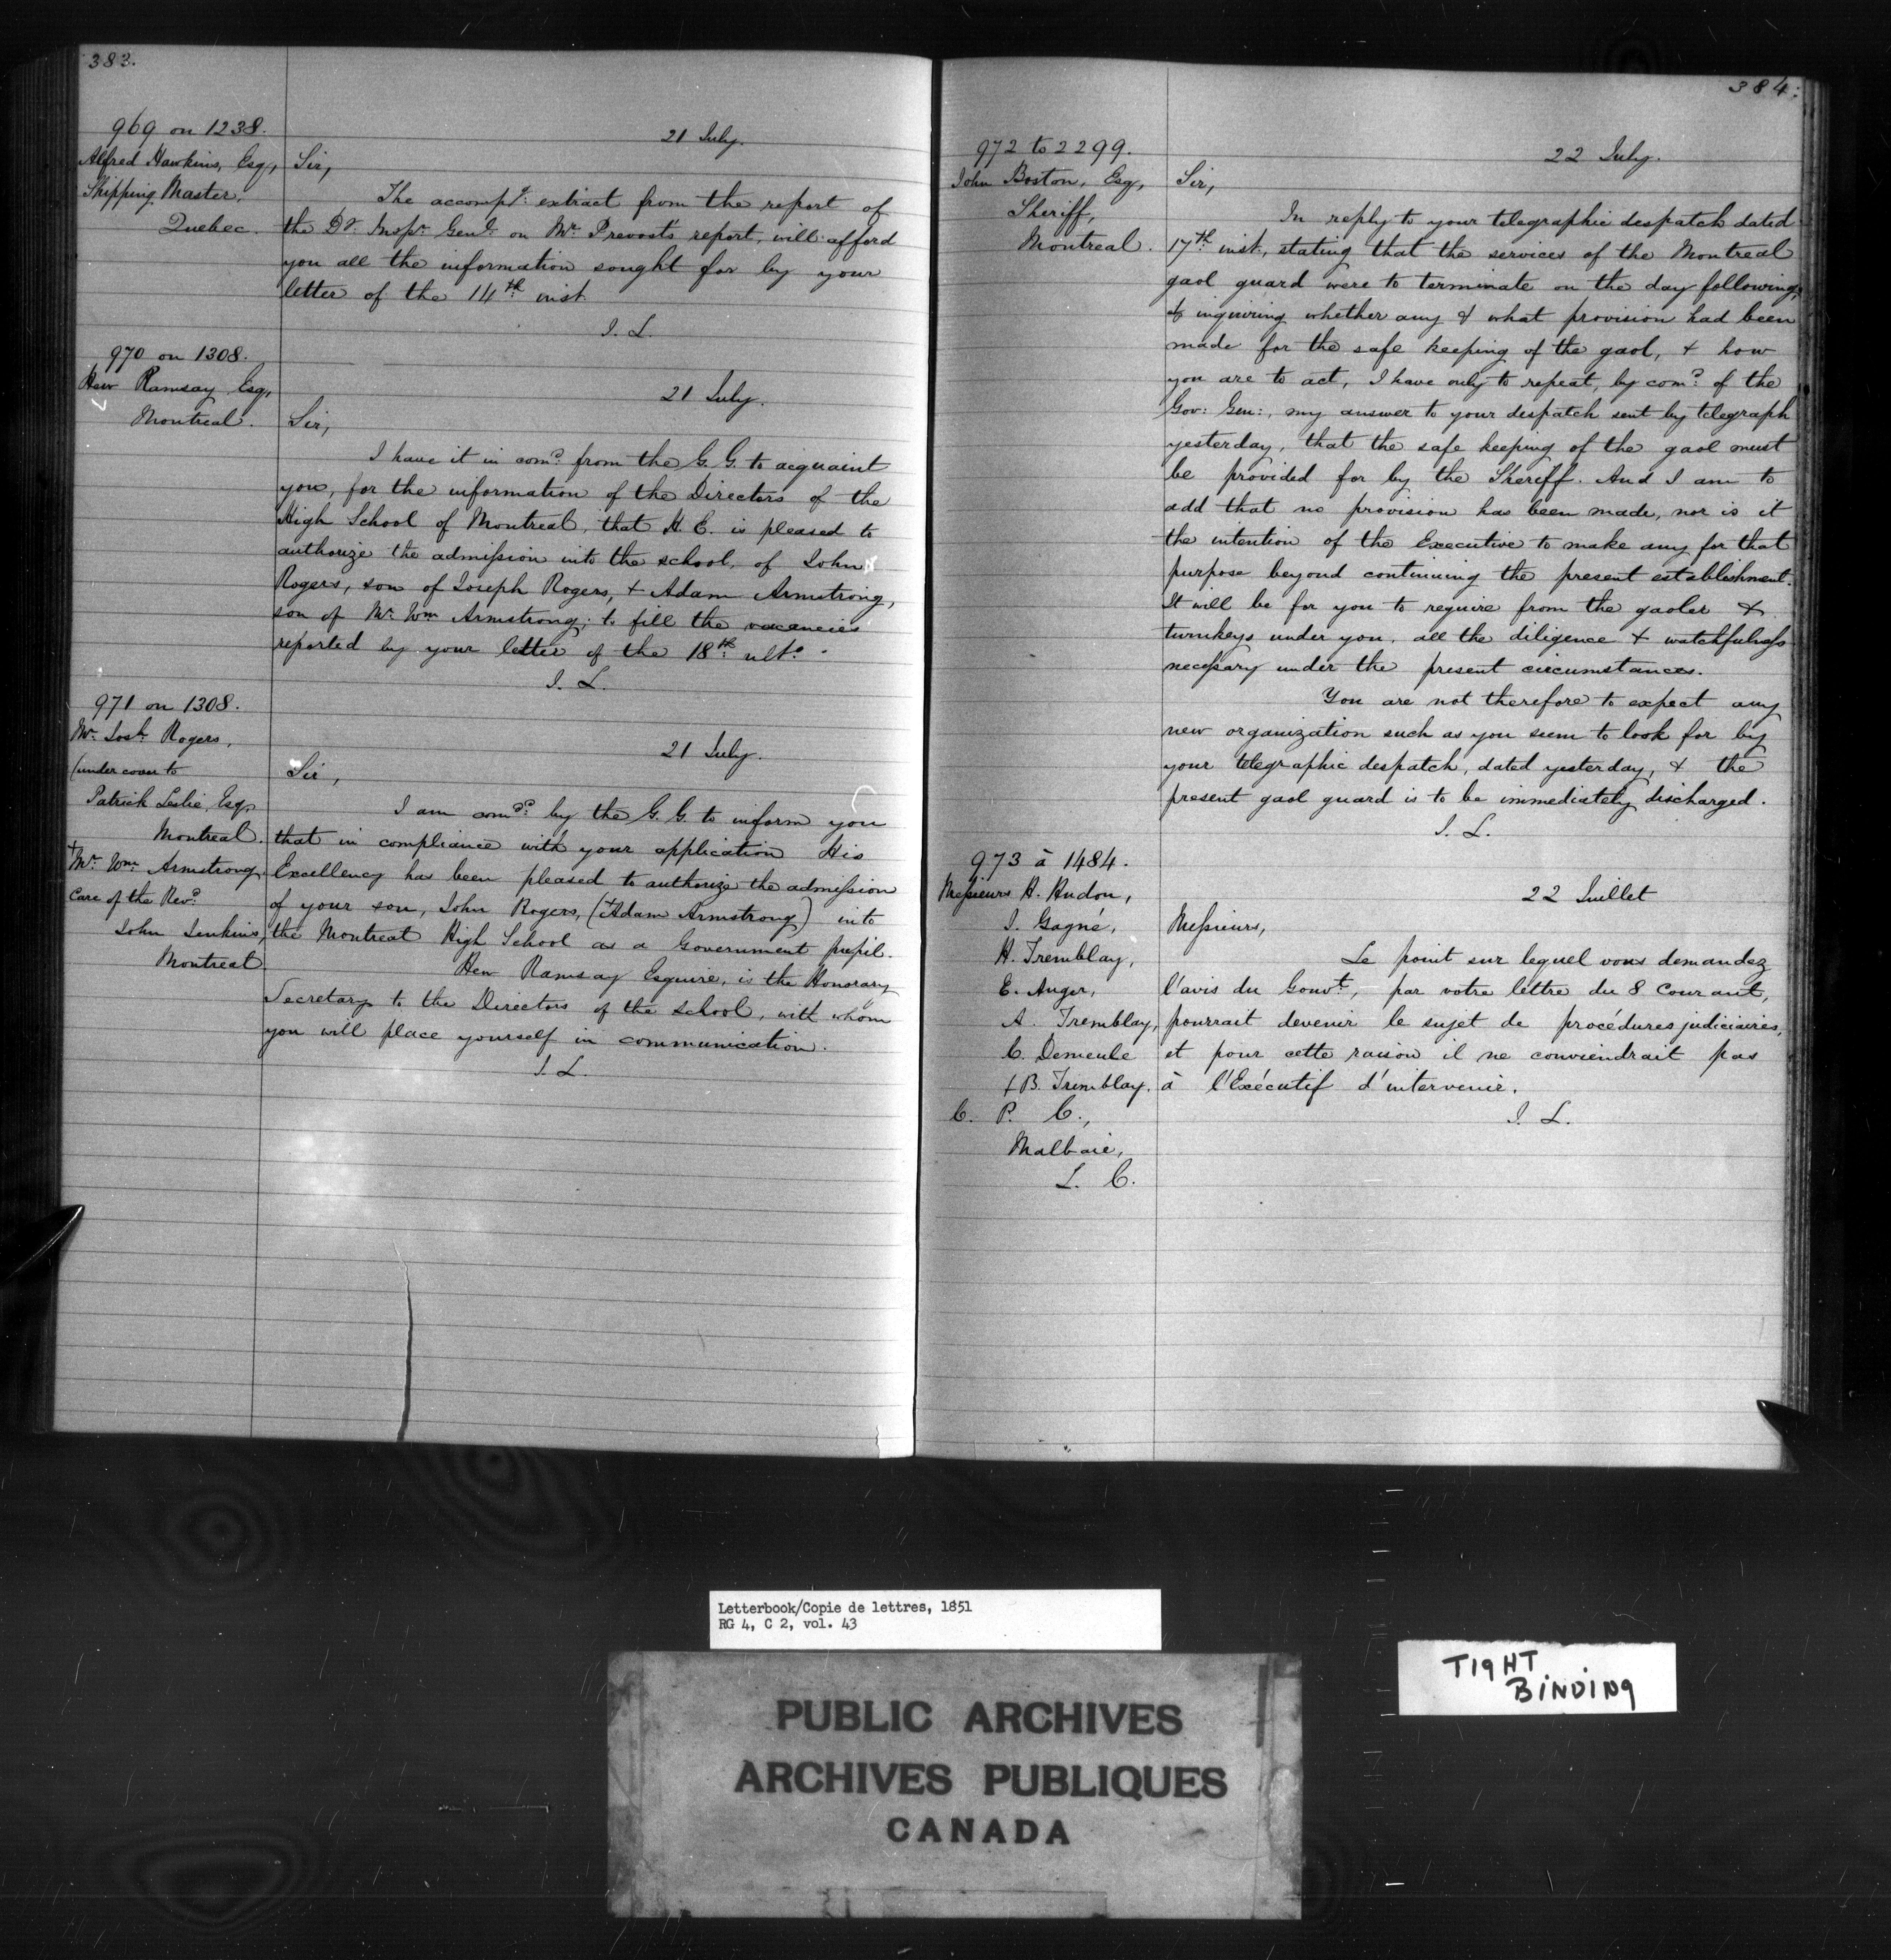 383.
969 on 1238.
Alfred Hawkins, Esq,
Shipping Master,
Quebec.
21 July.
Sir,
The accompg. extract from the report of
the Dy. Inspr. Genl. on Mr. Prevost's report, will afford
you all the information sought for by your
letter of the 14th inst.
J. L.
970 on 1308.
Hew Ramsay Esq,
Montreal.
21 July.
Sir,
I have it in comd. from the G. G. to acquaint
you, for the information of the Directors of the
High School of Montreal, that H. E. is pleased to
authorize the admission into the school, of John
Rogers, son of Joseph Rogers, + Adam Armstrong,
son of Mr. Wm Armstrong; to fill the vacancies
reported by your letter of the 18th. ulto.
J. L.
971 on 1308.
Mr. Josh. Rogers,
(under cover to
Patrick Leslie, Esq,
Montreal.
+ Mr. Wm. Armstrong,
Care of the Revd.
John Jenkins,
Montreal.
21 July.
Sir,
I am comdd. by the G. G. to inform you
that in compliance with your application His
Excellency has been pleased to authorize the admission
of your son, John Rogers, (+ Adam Armstrong) into
the Montreal High School as a Government pupil.
Hew Ramsay Esquire, is the Honorary
Secretary to the Directors of the school, with whom
you will place yourself in communication.
J. L.
384.
972 to 2299.
John Boston, Esq,
Sheriff,
Montreal.
22 July.
Sir,
In reply to your telegraphic despatch dated
17th. inst, stating that the services of the Montreal
gaol guard were to terminate on the day following,
& inquiring whether any & what provision had been
made for the safe keeping of the gaol, + how
you are to act, I have only to repeat, by comd. of the
Gov: Gen:, my answer to your despatch sent by telegraph
yesterday, that the safe keeping of the gaol must
be provided for by the Sheriff. And I am to
add that no provision has been made, nor is it
the intention of the Executive to make any for that
purpose beyond continuing the present establishment.
It will be for you to require from the gaoler &
turnkeys under you, all the diligence + watchfulness
necessary under the present circumstances.
You are not therefore to expect any
new organization such as you seem to look for by
your telegraphic despatch, dated yesterday, & the
present gaol guard is to be immediately discharged.
J. L.
973 à 1484.
Messieurs H. Hudon,
J. Gagné,
H. Tremblay,
E. Auger,
A. Tremblay,
C. Demeule
+ B. Tremblay.
C. P. C.,
Malbaie,
L. C.
22 Juillet
Messieurs,
Le point sur lequel vous demandez
l'avis du Gouvt., par votre lettre du 8 Courant,
pourrait devenir le sujet de procédures judiciaires,
et pour cette raison il ne conviendrait pas
à l'Exécutif d'intervenir.
J. L.
Letterbook/Copie de lettres, 1851
RG 4, C 2, vol. 43
TIGHT
BINDING
PUBLIC ARCHIVES
ARCHIVES PUBLIQUES
CANADA